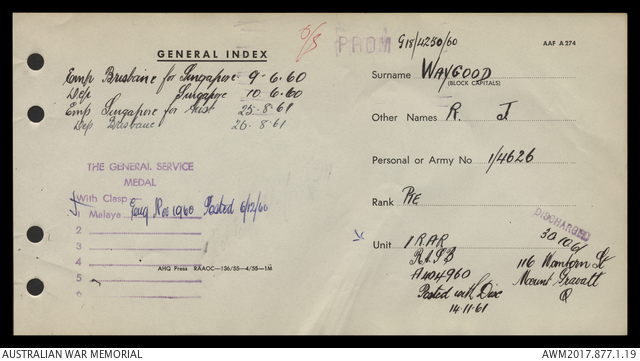 GENERAL INDEX
O/S
PROM
G18/4250/60
AAF A 274
Emp Brisbane for Singapore 9-6.60
Dep Singapore 10.6.60
Emp Singapore for Aust 25-8-61
Dep Brisbane 26.8.61
Surname WAYGOOD
(BLOCK CAPITALS)
Other Names R. J.
Personal or Army No 1/4626
Rank PTE
THE GENERAL SERVICE
MEDAL
With Clasp
1 Malaya Enq Nov 1960 Posted 6/12/60
2
3
4
5
6
AHQ Press RAAOC—136/55—4/55—1M
DISCHARGED
30 10 61
Unit 1 RAR
R.A.S.B
A404960
Posted with Disc
14.11.61
116 St
Mount Gravatt
Q
AUSTRALIAN WAR MEMORIAL
AWM2017.877.1.19